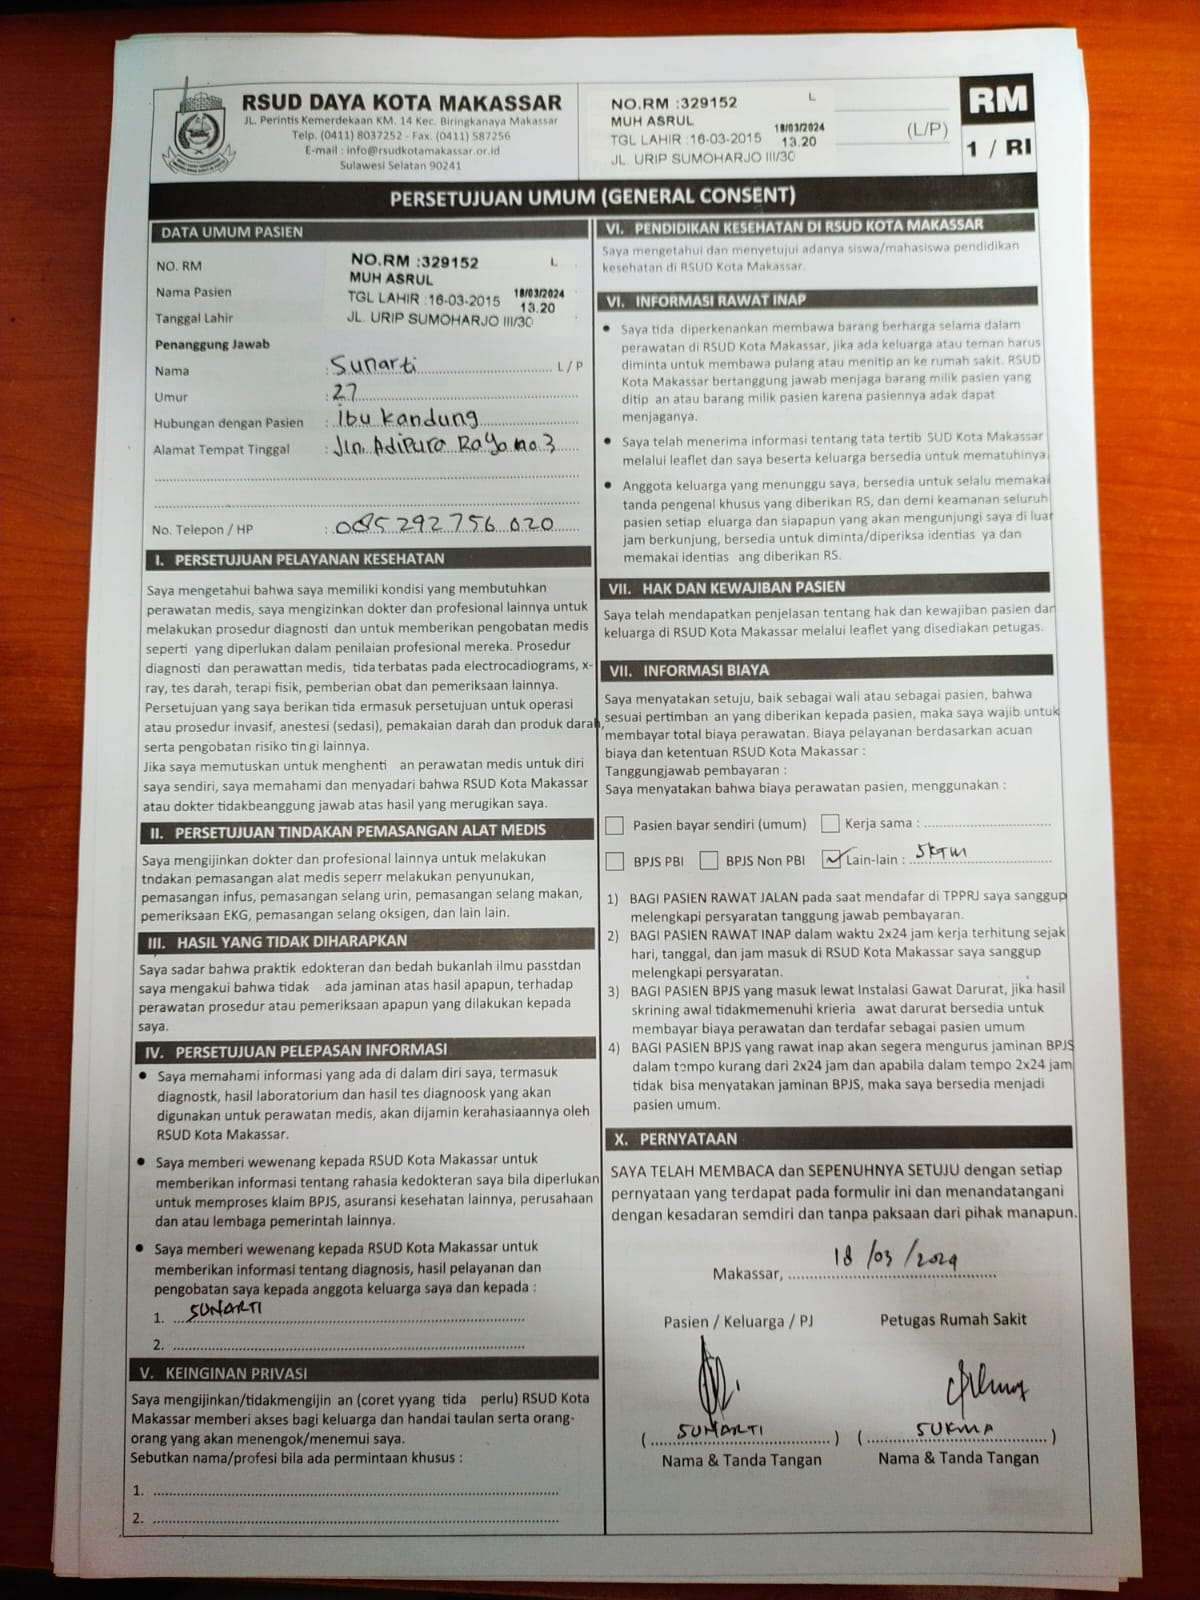 RSUD DAYA KOTA MAKASSAR
JL. Perintis Kemerdekaan KM. 14 Kec. Biringkanaya Makassar
Telp. (0411) 8037252 - Fax. (0411) 587256
E-mail : info@rsudkotamakassar.or.id
Sulawesi Selatan 90241
NO.RM :329152 L
MUH ASRUL
TGL LAHIR :16-03-2015 18/03/2024
13.20
JL. URIP SUMOHARJO III/30
(L/P)
RM
1 / RI
PERSETUJUAN UMUM (GENERAL CONSENT)
DATA UMUM PASIEN
NO. RM
Nama Pasien
Tanggal Lahir
NO.RM :329152 L
MUH ASRUL
TGL LAHIR :16-03-2015 18/03/2024
13.20
JL. URIP SUMOHARJO III/30
Penanggung Jawab
Nama : Sunarti L / P
Umur : 27
Hubungan dengan Pasien : ibu kandung
Alamat Tempat Tinggal : Jln. Adipura Raya no 3
No. Telepon / HP : 085 292 756 020
I. PERSETUJUAN PELAYANAN KESEHATAN
Saya mengetahui bahwa saya memiliki kondisi yang membutuhkan
perawatan medis, saya mengizinkan dokter dan profesional lainnya untuk
melakukan prosedur diagnosti dan untuk memberikan pengobatan medis
seperti yang diperlukan dalam penilaian profesional mereka. Prosedur
diagnosti dan perawattan medis, tida terbatas pada electrocadiograms, x-
ray, tes darah, terapi fisik, pemberian obat dan pemeriksaan lainnya.
Persetujuan yang saya berikan tida ermasuk persetujuan untuk operasi
atau prosedur invasif, anestesi (sedasi), pemakaian darah dan produk darah,
serta pengobatan risiko tin gi lainnya.
Jika saya memutuskan untuk menghenti an perawatan medis untuk diri
saya sendiri, saya memahami dan menyadari bahwa RSUD Kota Makassar
atau dokter tidakbeanggung jawab atas hasil yang merugikan saya.
II. PERSETUJUAN TINDAKAN PEMASANGAN ALAT MEDIS
Saya mengijinkan dokter dan profesional lainnya untuk melakukan
tndakan pemasangan alat medis seperr melakukan penyunukan,
pemasangan infus, pemasangan selang urin, pemasangan selang makan,
pemeriksaan EKG, pemasangan selang oksigen, dan lain lain.
III. HASIL YANG TIDAK DIHARAPKAN
Saya sadar bahwa praktik edokteran dan bedah bukanlah ilmu passtdan
saya mengakui bahwa tidak ada jaminan atas hasil apapun, terhadap
perawatan prosedur atau pemeriksaan apapun yang dilakukan kepada
saya.
IV. PERSETUJUAN PELEPASAN INFORMASI
• Saya memahami informasi yang ada di dalam diri saya, termasuk
diagnostk, hasil laboratorium dan hasil tes diagnoosk yang akan
digunakan untuk perawatan medis, akan dijamin kerahasiaannya oleh
RSUD Kota Makassar.
• Saya memberi wewenang kepada RSUD Kota Makassar untuk
memberikan informasi tentang rahasia kedokteran saya bila diperlukan
untuk memproses klaim BPJS, asuransi kesehatan lainnya, perusahaan
dan atau lembaga pemerintah lainnya.
• Saya memberi wewenang kepada RSUD Kota Makassar untuk
memberikan informasi tentang diagnosis, hasil pelayanan dan
pengobatan saya kepada anggota keluarga saya dan kepada :
1. SUNARTI
2.
V. KEINGINAN PRIVASI
Saya mengijinkan/tidakmengijin an (coret yyang tida perlu) RSUD Kota
Makassar memberi akses bagi keluarga dan handai taulan serta orang-
orang yang akan menengok/menemui saya.
Sebutkan nama/profesi bila ada permintaan khusus :
1.
2.
VI. PENDIDIKAN KESEHATAN DI RSUD KOTA MAKASSAR
Saya mengetahui dan menyetujui adanya siswa/mahasiswa pendidikan
kesehatan di RSUD Kota Makassar.
VI. INFORMASI RAWAT INAP
• Saya tida diperkenankan membawa barang berharga selama dalam
perawatan di RSUD Kota Makassar, jika ada keluarga atau teman harus
diminta untuk membawa pulang atau menitip an ke rumah sakit. RSUD
Kota Makassar bertanggung jawab menjaga barang milik pasien yang
ditip an atau barang milik pasien karena pasiennya adak dapat
menjaganya.
• Saya telah menerima informasi tentang tata tertib SUD Kota Makassar
melalui leaflet dan saya beserta keluarga bersedia untuk mematuhinya.
• Anggota keluarga yang menunggu saya, bersedia untuk selalu memakai
tanda pengenal khusus yang diberikan RS, dan demi keamanan seluruh
pasien setiap eluarga dan siapapun yang akan mengunjungi saya di luar
jam berkunjung, bersedia untuk diminta/diperiksa identias ya dan
memakai identias ang diberikan RS.
VII. HAK DAN KEWAJIBAN PASIEN
Saya telah mendapatkan penjelasan tentang hak dan kewajiban pasien dan
keluarga di RSUD Kota Makassar melalui leaflet yang disediakan petugas.
VII. INFORMASI BIAYA
Saya menyatakan setuju, baik sebagai wali atau sebagai pasien, bahwa
sesuai pertimban an yang diberikan kepada pasien, maka saya wajib untuk
membayar total biaya perawatan. Biaya pelayanan berdasarkan acuan
biaya dan ketentuan RSUD Kota Makassar :
Tanggungjawab pembayaran :
Saya menyatakan bahwa biaya perawatan pasien, menggunakan :
Pasien bayar sendiri (umum) Kerja sama :
BPJS PBI BPJS Non PBI Lain-lain : SKTM
1) BAGI PASIEN RAWAT JALAN pada saat mendafar di TPPRJ saya sanggup
melengkapi persyaratan tanggung jawab pembayaran.
2) BAGI PASIEN RAWAT INAP dalam waktu 2x24 jam kerja terhitung sejak
hari, tanggal, dan jam masuk di RSUD Kota Makassar saya sanggup
melengkapi persyaratan.
3) BAGI PASIEN BPJS yang masuk lewat Instalasi Gawat Darurat, jika hasil
skrining awal tidakmemenuhi krieria awat darurat bersedia untuk
membayar biaya perawatan dan terdafar sebagai pasien umum
4) BAGI PASIEN BPJS yang rawat inap akan segera mengurus jaminan BPJS
dalam tempo kurang dari 2x24 jam dan apabila dalam tempo 2x24 jam
tidak bisa menyatakan jaminan BPJS, maka saya bersedia menjadi
pasien umum.
X. PERNYATAAN
SAYA TELAH MEMBACA dan SEPENUHNYA SETUJU dengan setiap
pernyataan yang terdapat pada formulir ini dan menandatangani
dengan kesadaran semdiri dan tanpa paksaan dari pihak manapun.
Makassar, 18/03/2024
Pasien / Keluarga / PJ Petugas Rumah Sakit
( SUNARTI ) ( SUKMA )
Nama & Tanda Tangan Nama & Tanda Tangan